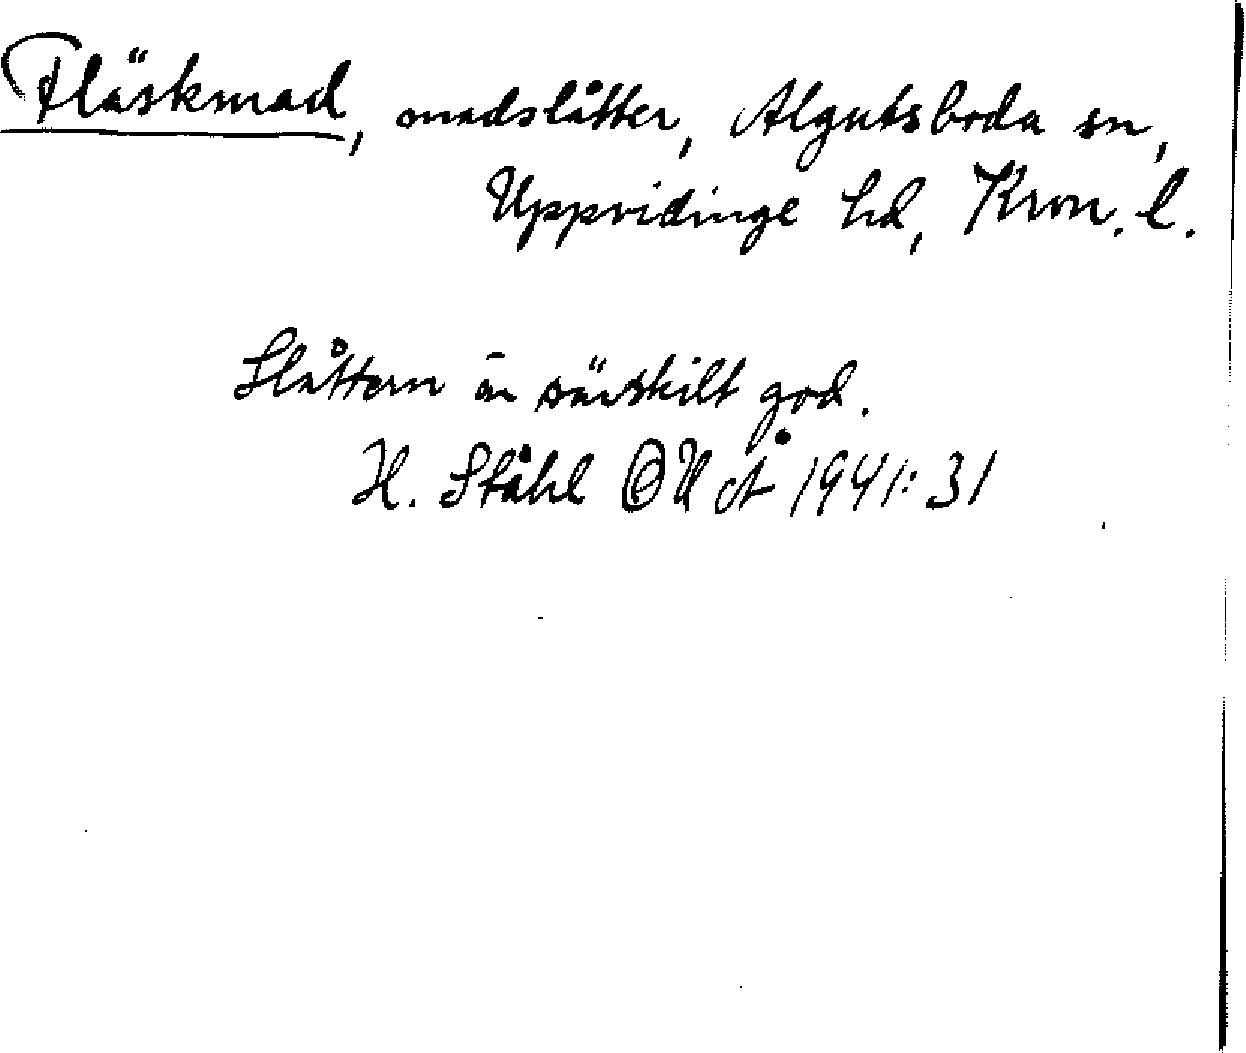 Fläskmad, madslåtter, Algutsboda sn,
Uppvidinge hd, Kron. l.
Slåttern är särskilt god.
H. Ståhl OUÅ 1941: 31